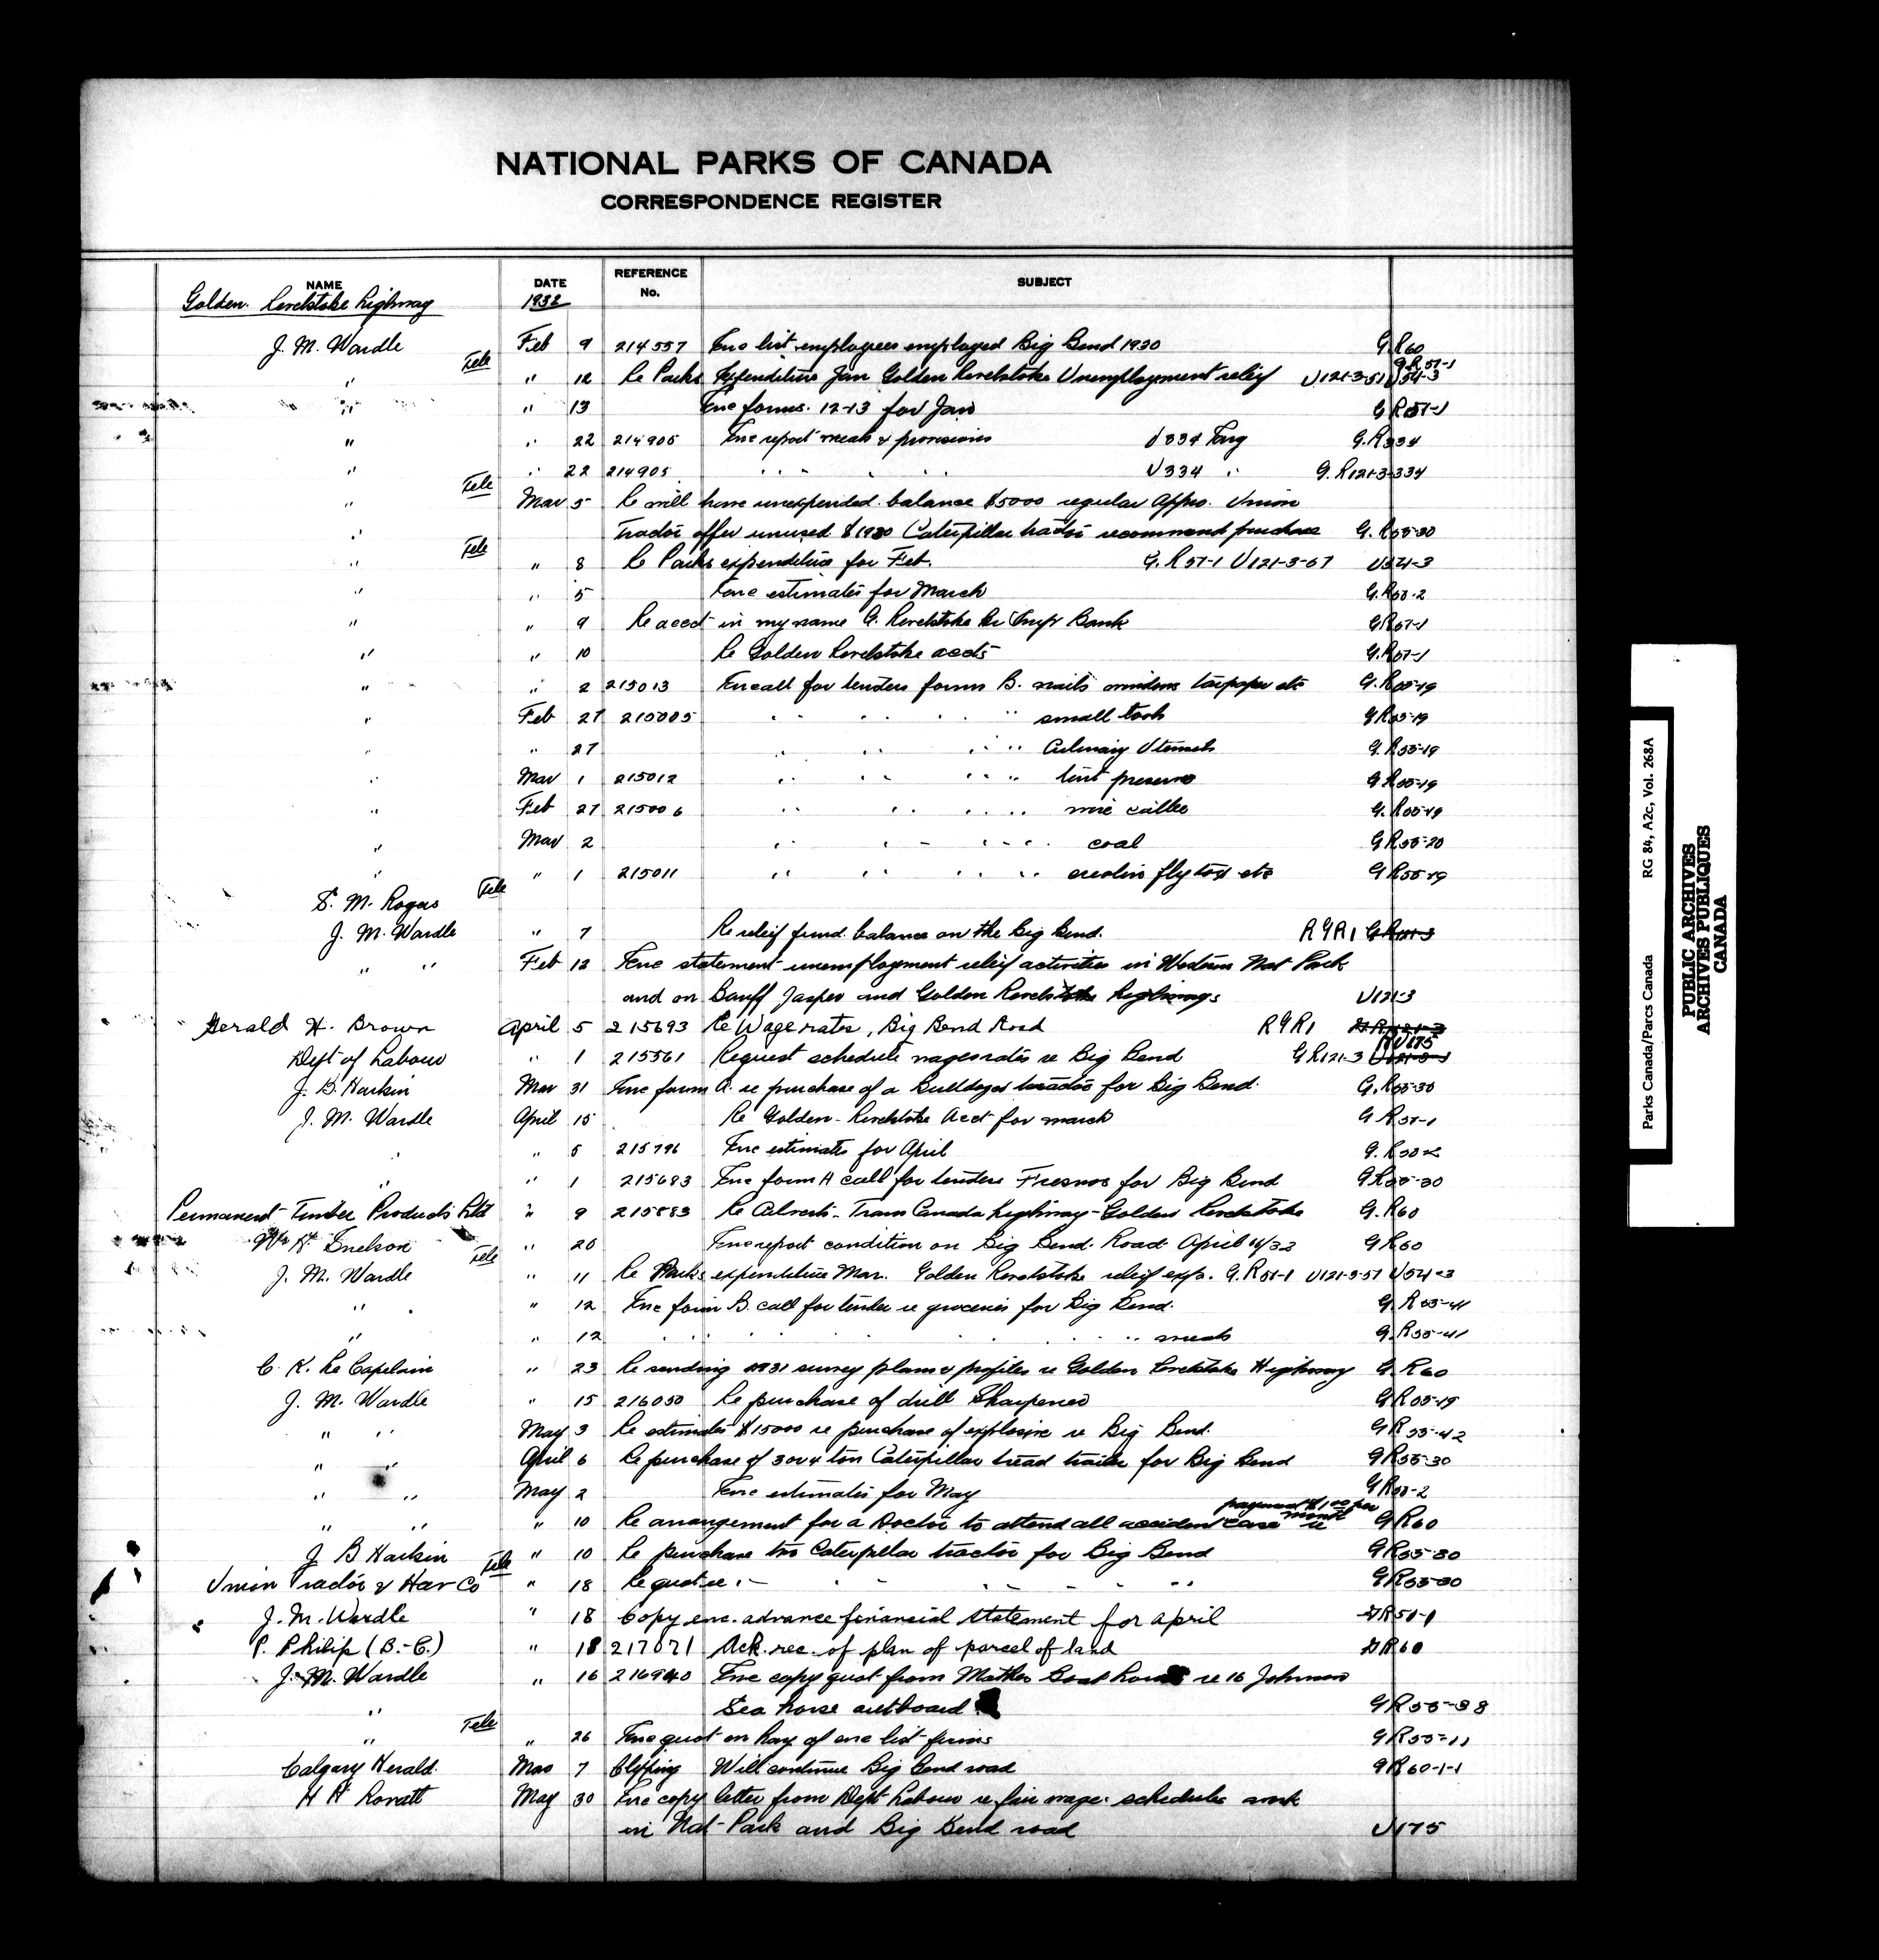 NATIONAL PARKS OF CANADA
CORRESPONDENCE REGISTER
NAME DATE REFERENCE No. SUBJECT
Golden. Revelstoke highway 1932
J. M. Wardle Feb 9 214557 Enc list employees employed Big Bend 1930 G.R60
Tele G.R57-1
" " 12 Re Parks Expenditure Jan Golden Revelstoke Unemployment relief U121-3-51 U54-3
" " 13 Enc forms. 12-13 for Jan G.R57-1
" " 22 214905 Enc report meals & provisions U334 G.R334
" " 22 214905 " " " " U334 " G.R121-3-334
Tele
" Mar 5 Re will have unexpended balance $5000 regular Appro. Union
" Tractor offer unused $1930 Caterpillar tractor recommend purchase G.R55-30
Tele
" " 8 Re Parks expenditure for Feb. G.R57-1 U121-3-57 U54-3
" " 5 Enc estimates for March G.R50-2
" " 9 Re acct in my name G. Revelstoke Imp Bank G.R57-1
" " 10 Re Golden Revelstoke accts G.R57-1
" " 2 215013 Enc call for tenders form B. nails windows tarpaper etc G.R55-19
" Feb 27 215005 " " " " small tools G.R55-19
" " 27 " " " " Culinary Utensils G.R55-19
" Mar 1 215012 " " " " tent G.R55-19
" Feb 27 215006 " " " " wire G.R55-19
" Mar 2 " " " " coal G.R55-20
" " 1 215011 " " " " creolin fly tox etc G.R55-19
Tele
S. M. Rogers
J. M. Wardle " 7 Re relief fund balance on the Big Bend. RGR1 GR121-3
" " Feb 12 Enc statement unemployment relief activities in Western Nat Park
and on Banff Jasper and Golden Revelstoke highways U121-3
Gerald H. Brown April 5 215693 Re Wage rates, Big Bend Road RGR1 GR121-3
RU175
Dept of Labour " 1 215561 Request schedule wages rates re Big Bend GR121-3 U121-3-1
J. B. Harkin Mar 31 Enc form A. re purchase of a Bulldozer tractor for Big Bend. G.R55-30
J. M. Wardle April 15 Re Golden - Revelstoke Acct for march G.R57-1
" " 5 215796 Enc estimates for April G.R50-2
" " 1 215683 Enc form A call for tenders Fresnos for Big Bend GR55-30
Permanent Timber Products Ltd " 9 215883 Re Culverts - Trans Canada highway - Golden Revelstoke G.R60
Snelson " 20 Enc report condition on Big Bend Road April 16/32 GR60
Tele
J. M. Wardle " 11 Re Parks expenditure Mar. Golden Revelstoke relief exp. G.R57-1 U121-3-57 U54-3
" " 12 Enc form B. call for tender re groceries for Big Bend. G.R55-41
" " 12 " " " " " " meats G.R55-41
C. K. Le Capelain " 23 Re sending 1931 survey plans & profiles re Golden Revelstoke Highway G.R60
J. M. Wardle " 15 216050 Re purchase of drill Sharpener GR55-19
" " May 3 Re estimates $15000 re purchase of explosive re Big Bend. GR55-42
" " April 6 Re purchase of 3 or 4 ton Caterpillar tread trailer for Big Bend GR55-30
" " May 2 Enc estimates for May GR50-2
payment $1.00 per month
" " " 10 Re arrangement for a Doctor to attend all accident case re GR60
J B Harkin " 10 Re purchase two Caterpillar tractor for Big Bend GR55-30
Tele
Union Tractor & Har Co " 18 Re quot re " - " - " GR55-30
J. M. Wardle " 18 Copy enc. advance financial statement for april GR57-1
P. Philip (B.-C.) " 18 217071 Ack. rec. of plan of parcel of land GR60
J. M. Wardle " 16 216940 Enc copy quot from Mather Boat house re 16 Johnson
" Sea horse outboard GR55-38
Tele
" " 26 Enc quot on hay of enc list firms GR55-11
Calgary Herald. Mar 7 Clipping Will continue Big Bend road GR60-1-1
H H Rowatt May 30 Enc copy letter from Dept Labour re fair wage schedules work
in Nat-Park and Big Bend road U175
Parks Canada/Parcs Canada RG 84, A2c, Vol. 268A
PUBLIC ARCHIVES
ARCHIVES PUBLIQUES
CANADA